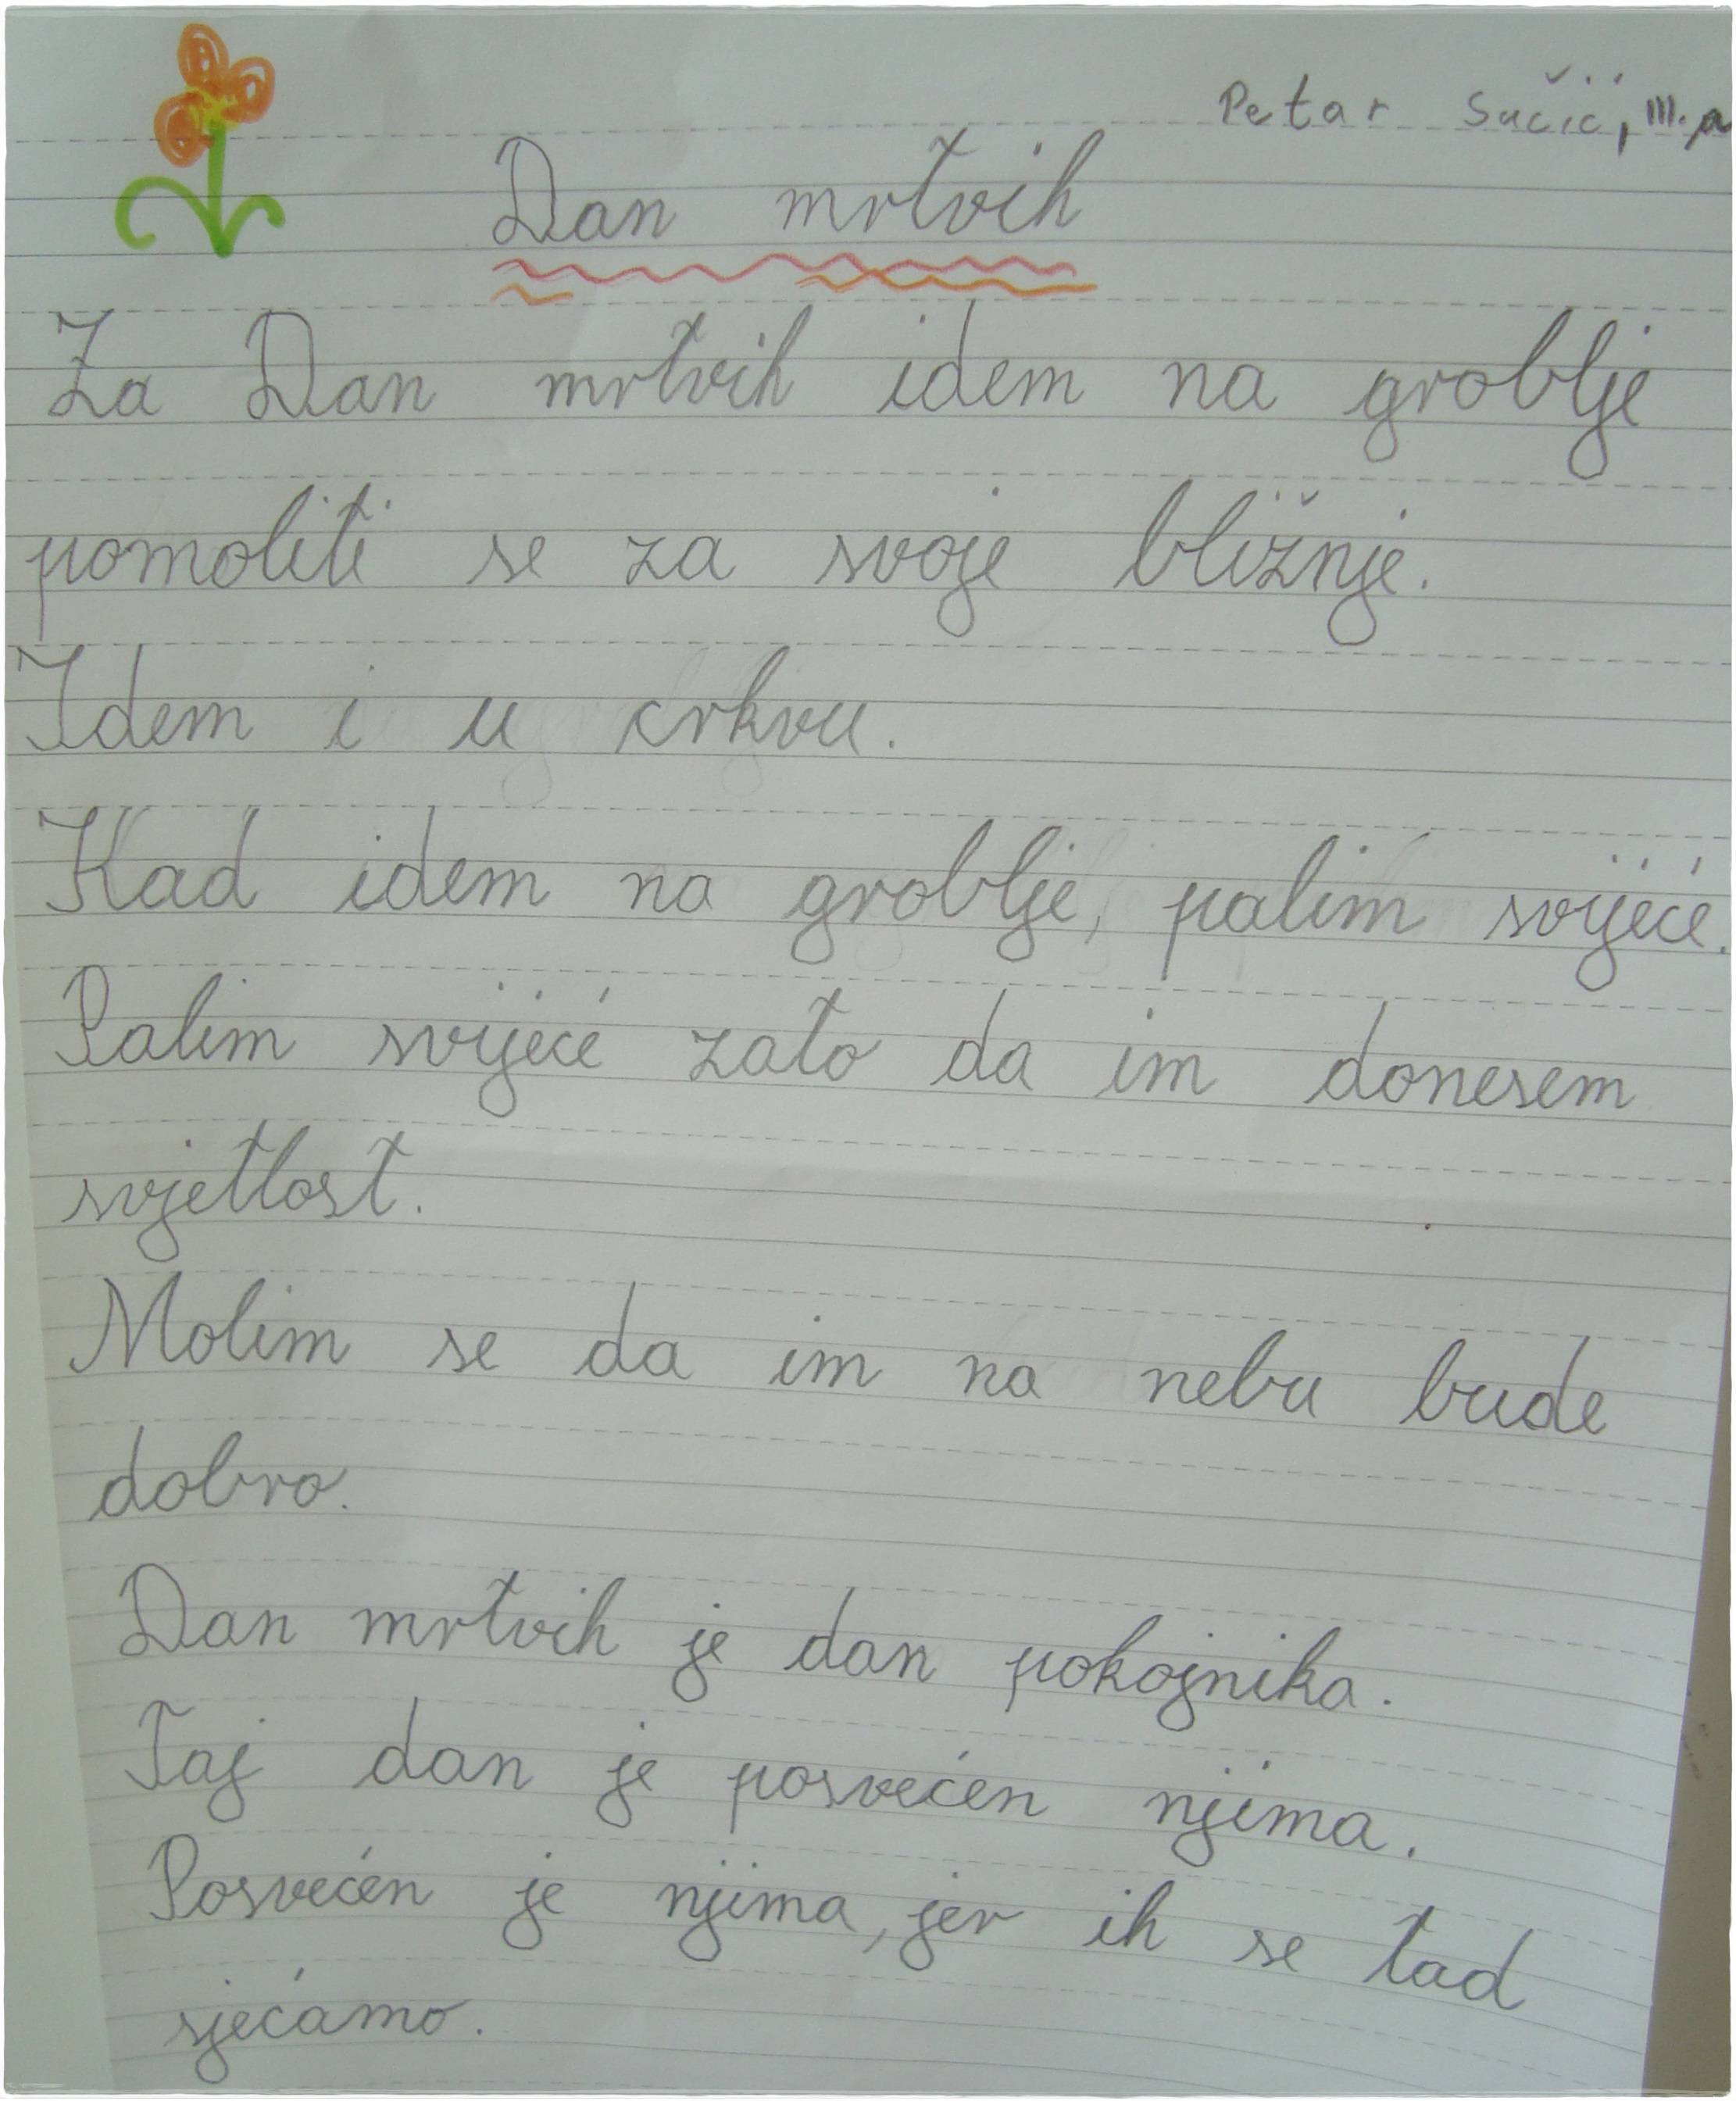 Petar Sučić, III. a
Dan mrtvih
Za Dan mrtvih idem na groblje
pomoliti se za svoje bližnje.
Idem i u crkvu.
Kad idem na groblje, palim svijeće.
Palim svijeće zato da im donesem
svjetlost.
Molim se da im na nebu bude
dobro.
Dan mrtvih je dan pokojnika.
Taj dan je posvećen njima.
Posvećen je njima, jer ih se tad
sjećamo.